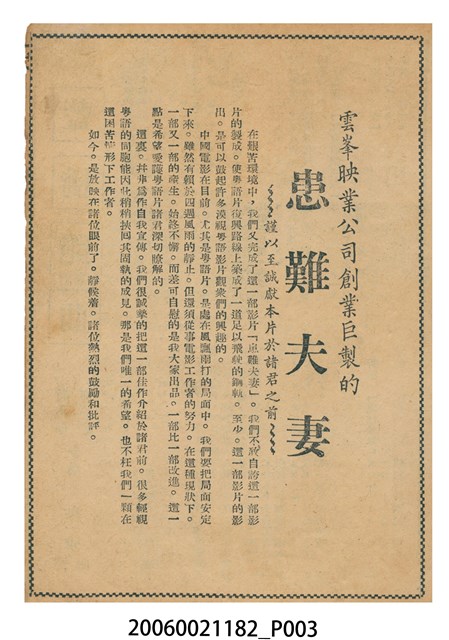 雲峯映業公司創業巨製的
患難夫妻
謹以至誠獻本片於諸君之前
在艱苦環境中，我們又完成了這一部影片「患難夫妻」。我們不敢自誇這一部影
片的製成。使粵語片復興路線上築成了一道足以飛馳的鋼軌。至少。這一部影片的影
出。是可以鼓起許多漠視粵語影片觀衆們的興趣的。
中國電影在目前。尤其是粵語片。是處在風飄雨打的局面中。我們要把局面安定
下來。雖然有賴於四週風雨的靜止。但還須從事電影工作者的努力。在這種現狀下。
一部又一部的產生。始終不懈。而差可自慰的是我大家出品。一部比一部改進。這一
點是希望愛護粵語片諸君深切瞭解的。
這裏。幷非為作自我宣傳。我們很誠摯的把這一部佳作介紹於諸君前。很多輕視
粵語的同胞能因此稍稍挾回其固執的成見。那是我們唯一的希望。也不枉我們一顆在
這困苦情形下工作者。
如今。是放映在諸位眼前了。靜候着。諸位熱烈的鼓勵和批評。
20060021182_P003